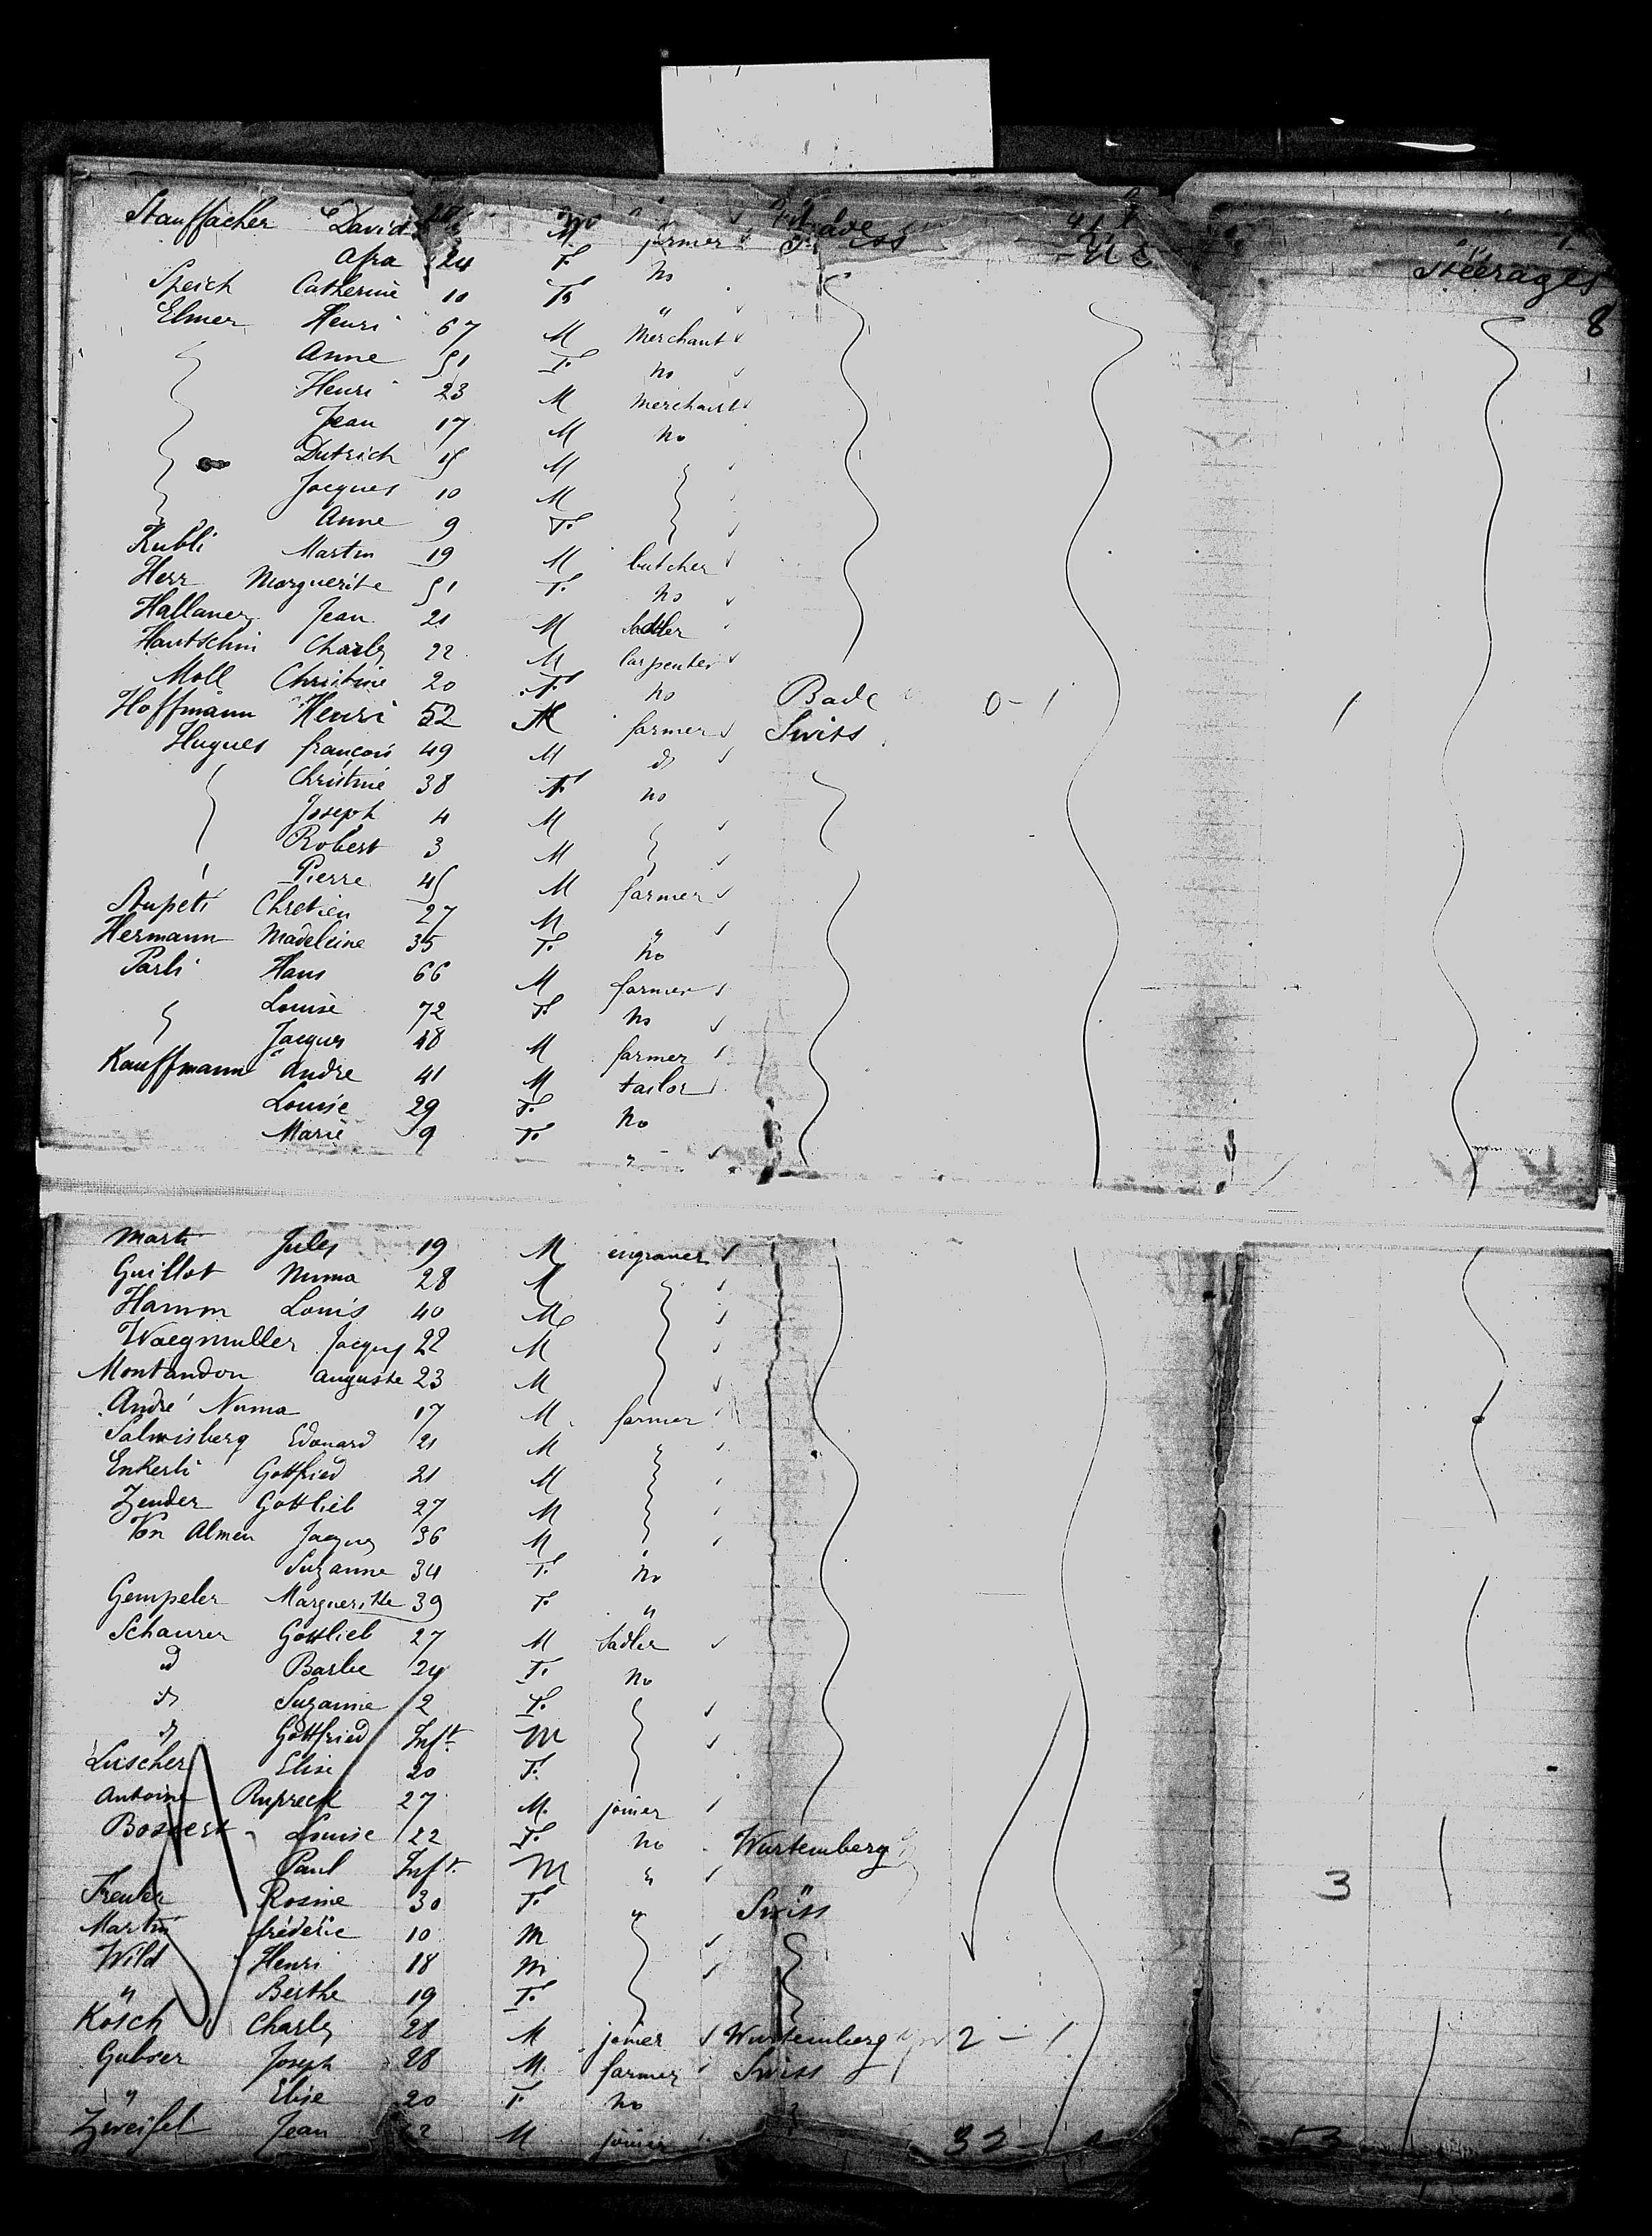 Stauffacher David M farmer Swiss U. S. Steerages
Afra 24 F. no
Speich Catherine 10 F. " 8
Elmer Henri 67 M Merchant
Anne 51 F. no
Henri 23 M Merchant
Jean 17 M no
Dietrich 15 M
Jacques 10 M
Anne 9 F.
Kubli Martin 19 M butcher
Herr Marguerite 51 F. no
Hallauer Jean 21 M Sadler
Hantschin Charles 22 M Carpenter
Moll Christine 20 F. no Bade 0-1 1
Hoffmann Henri 52 M farmer Swiss
Hugues françois 49 M do
Christine 38 F no
Joseph 4 M
Robert 3 M
Pierre 45 M farmer
Chretien 27 M "
Hermann Madeleine 35 F. no
Parli Hans 66 M farmer
Louise 72 F no
Jacques 48 M farmer
Kauffmann André 41 M tailor
Louise 29 F. no
Marie 9 F. "
Marti Jules 19 M engraver
Guillot Numa 28 M
Hamm Louis 40 M
Waegmuller Jacques 22 M
Montandon Auguste 23 M
André Numa 17 M farmer
Salvisberg Edouard 21 M "
Enkerli Gottfried 21 M
Zender Gottlieb 27 M
Von Almen Jacques 36 M
Suzanne 34 F. no
Gempeler Margueritte 39 F. "
Schaurer Gottlieb 27 M Sadler
do Barbe 24 F. no
do Suzanne 2 F.
do Gottfried Inft. M
Luscher Elise 20 F.
Antoine Ruprecht 27 M. joiner
Bossert Louise 22 F. no Wurtemberg
Paul Inft. M " 3
Freuler Rosine 30 F. " Swiss
Martin fréderic 10 M
Wild Henri 18 M
" Berthe 19 F.
Kosch Charles 28 M joiner Wurtemberg 2 - 1
Gubser Joseph 28 M. farmer Swiss
" Elise 20 F no
Zweifel Jean 22 M joiner 32 53